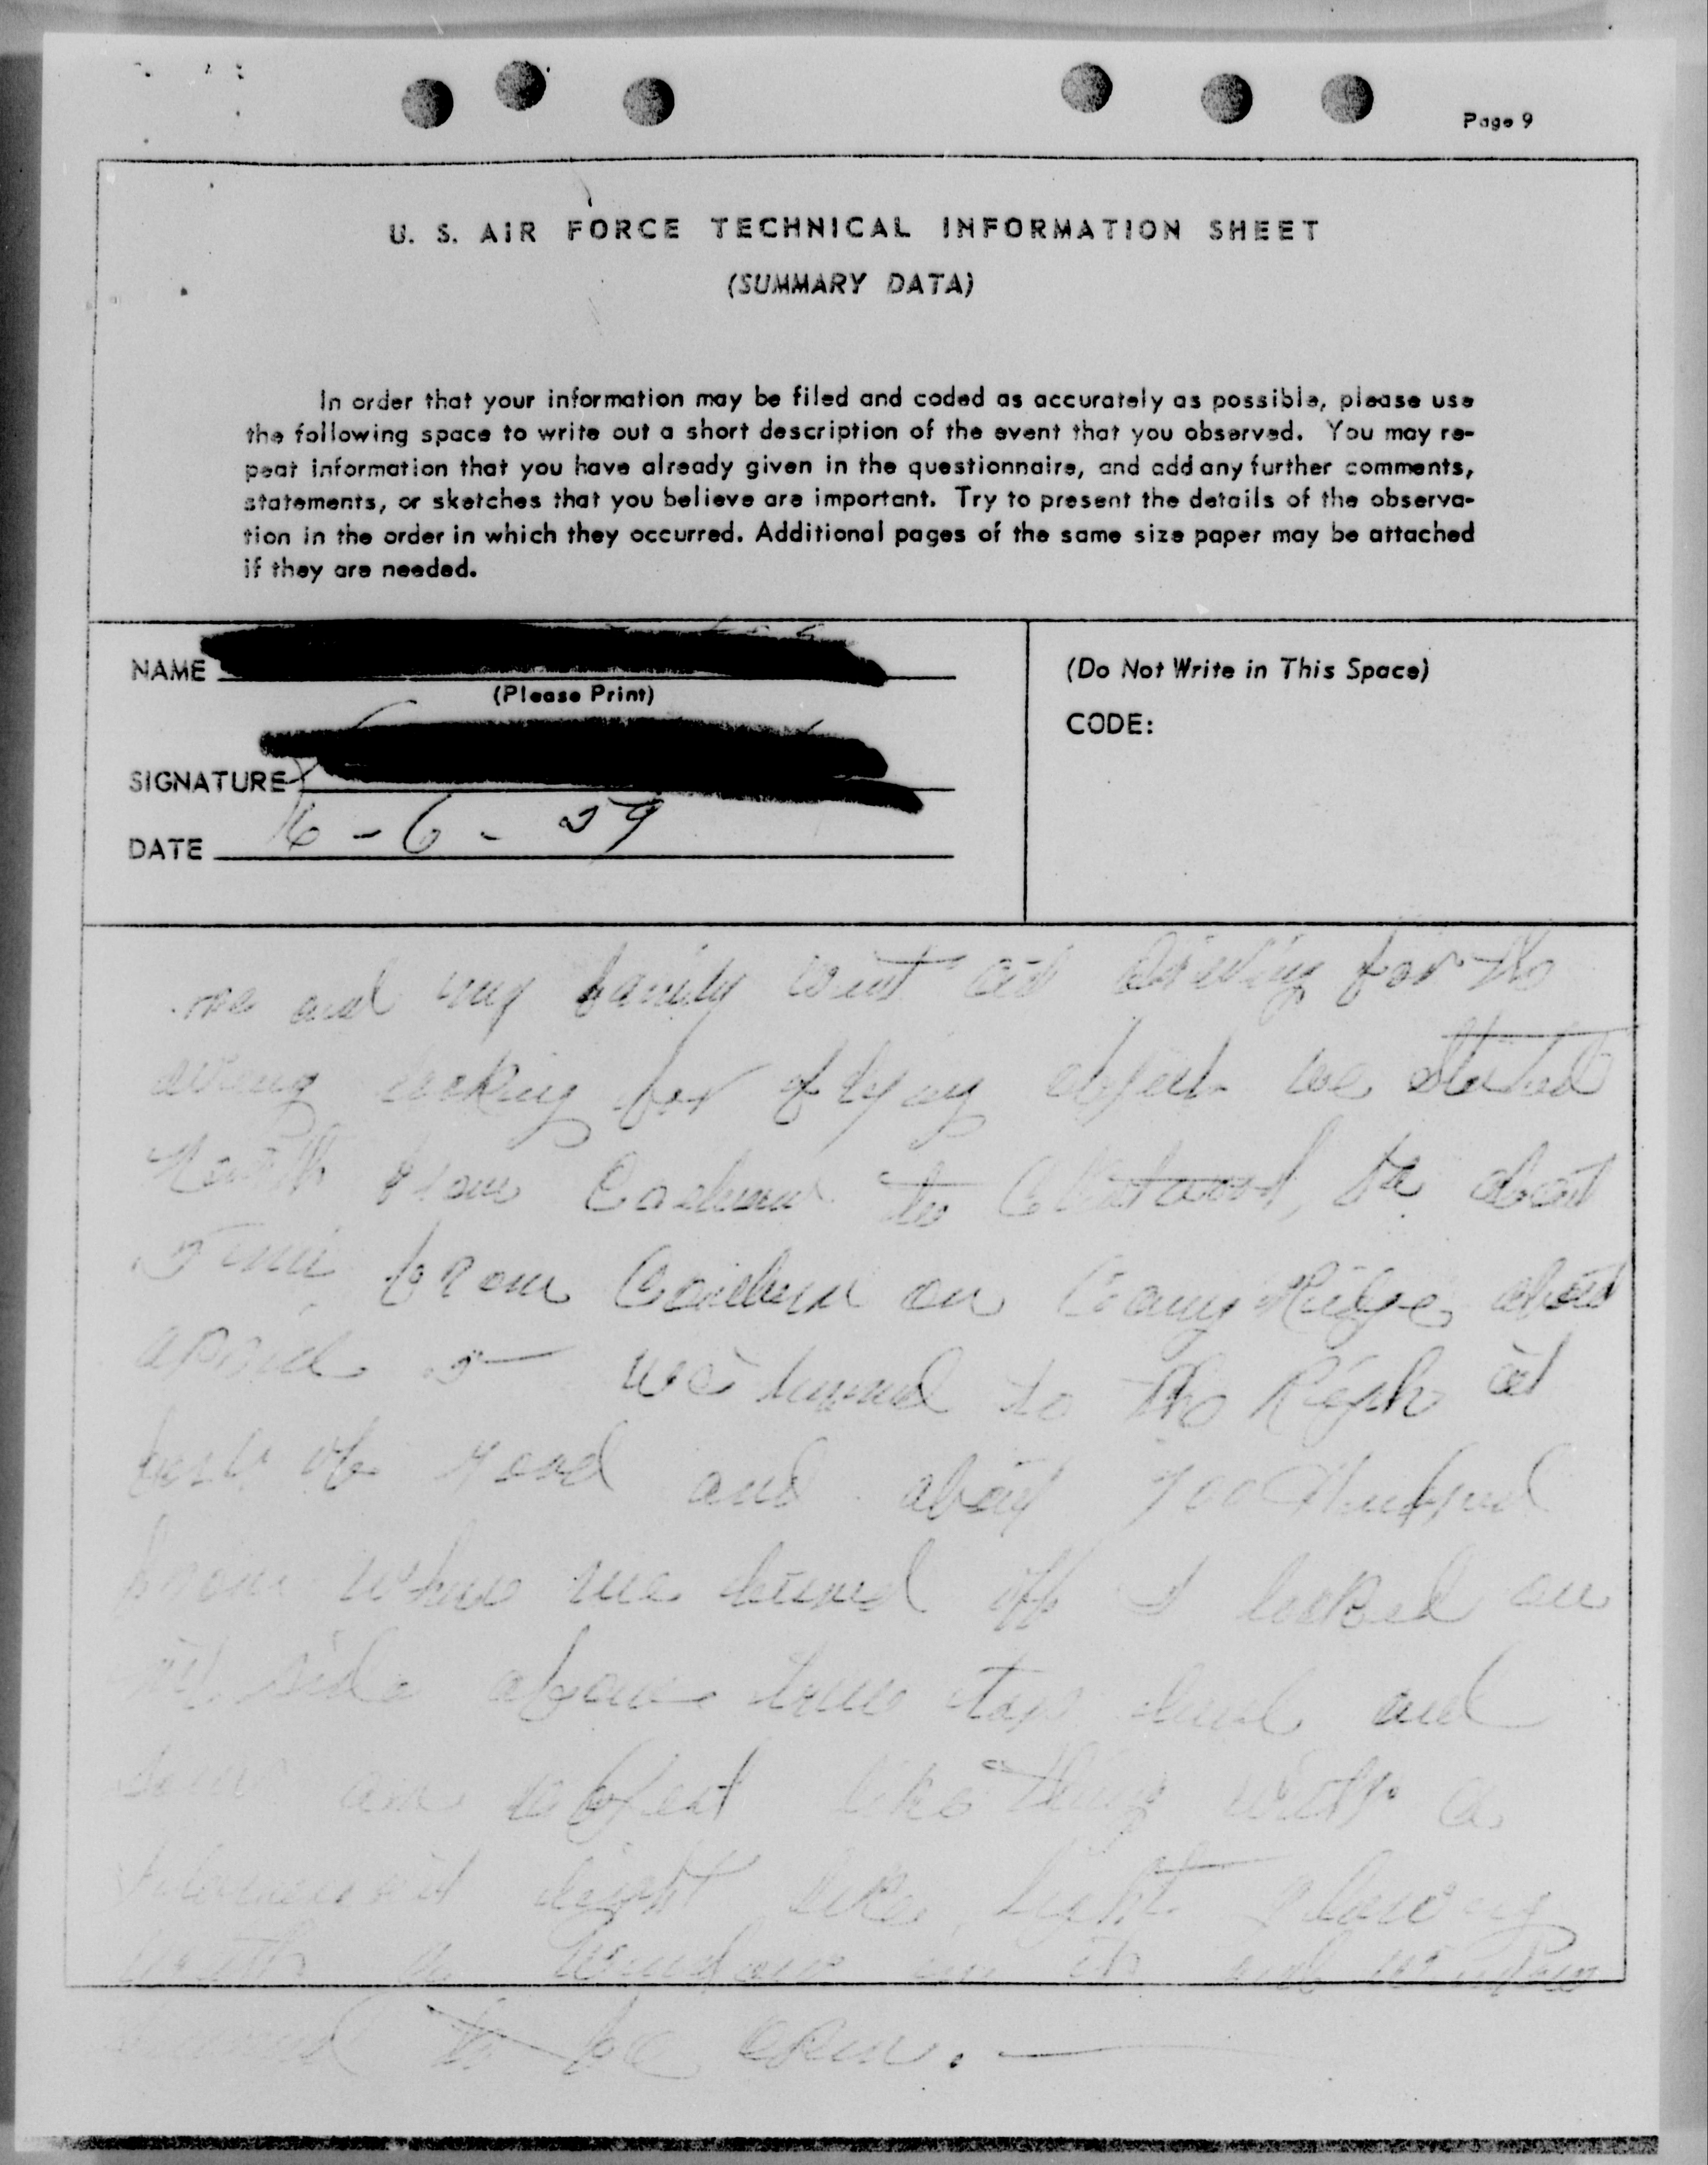 Page 9
U. S. AIR FORCE TECHNICAL INFORMATION SHEET
(SUMMARY DATA)
In order that your information may be filed and coded as accurately as possible, please use
the following space to write out a short description of the event that you observed. You may re-
peat information that you have already given in the questionnaire, and add any further comments,
statements, or sketches that you believe are important. Try to present the details of the observa-
tion in the order in which they occurred. Additional pages of the same size paper may be attached
if they are needed.
NAME
(Please Print)
SIGNATURE
DATE 16 - 6 - 59
(Do Not Write in This Space)
CODE:
me and my family went out driving for the
looking for flying object we started
from Coeburn to Clintwood, Va about
5 mi from Coeburn on Ridge about
5 we turned to the Right at
of road and about 700 Hundred
from where we turned off I looked on
rt. side above tree top level and
an object like thing with a
light like light glowing
with a window in it and window
to be open.